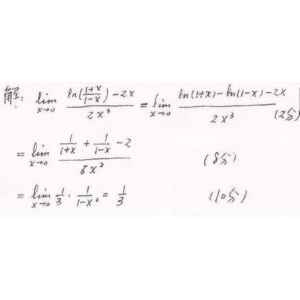 解: lim_{x→0} (ln((1+x)/(1-x)) - 2x)/(2x³) = lim_{x→0} (ln(1+x) - ln(1-x) - 2x)/(2x³) (2分)
= lim_{x→0} (1/(1+x) + 1/(1-x) - 2)/(6x²) (8分)
= lim_{x→0} 1/3 · 1/(1-x²) = 1/3 (10分)